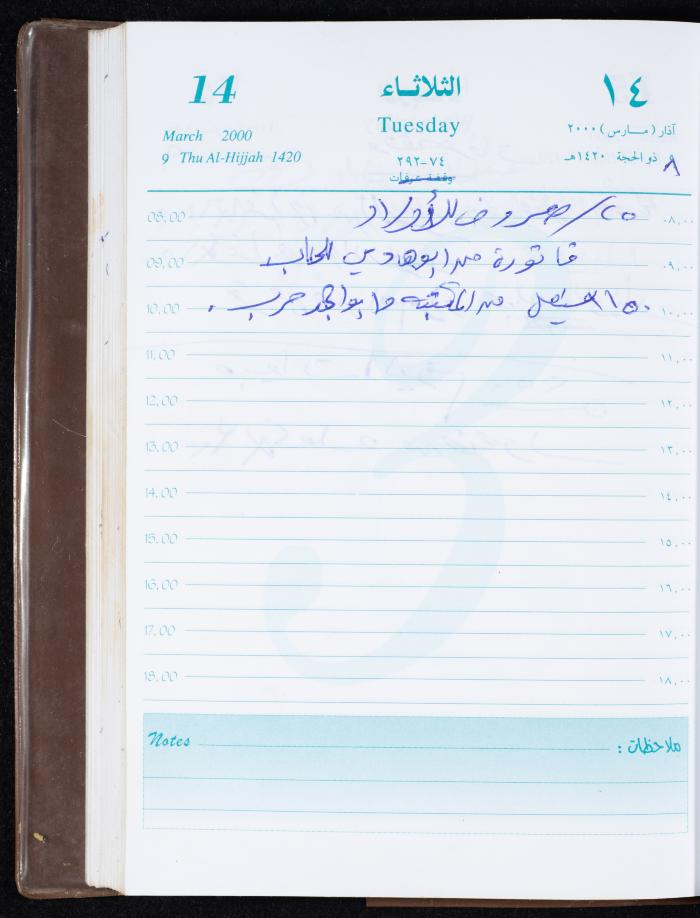 14 الثلاثـاء ١٤
Tuesday
March 2000 آذار (مـارس) ٢٠٠٠
9 Thu Al-Hijjah 1420 ٧٤-٢٩٢ ٨ ذو الحجة ١٤٢٠هـ
وقفة عرفات
08.00 ٢٥/ مصروف للأولاد ٠٨,٠٠
09.00 فاتورة من ابو هادي للحساب ٠٩,٠٠
10.00 ١٥٠ شيقل من المكتبه ١٠,٠٠
11.00 ١١,٠٠
12.00 ١٢,٠٠
13.00 ١٣,٠٠
14.00 ١٤,٠٠
15.00 ١٥,٠٠
16.00 ١٦,٠٠
17.00 ١٧,٠٠
18.00 ١٨,٠٠
Notes ملاحظات :